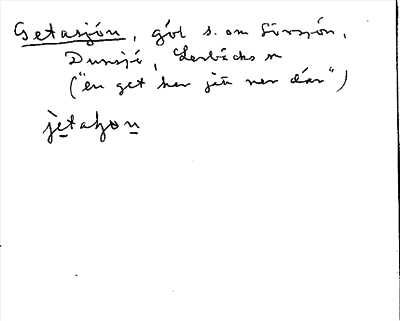 Getasjön, göl s. om Sörsjön,
Dunsjö, Lerbäcks sn
("en get har gått ner där")
jetahon